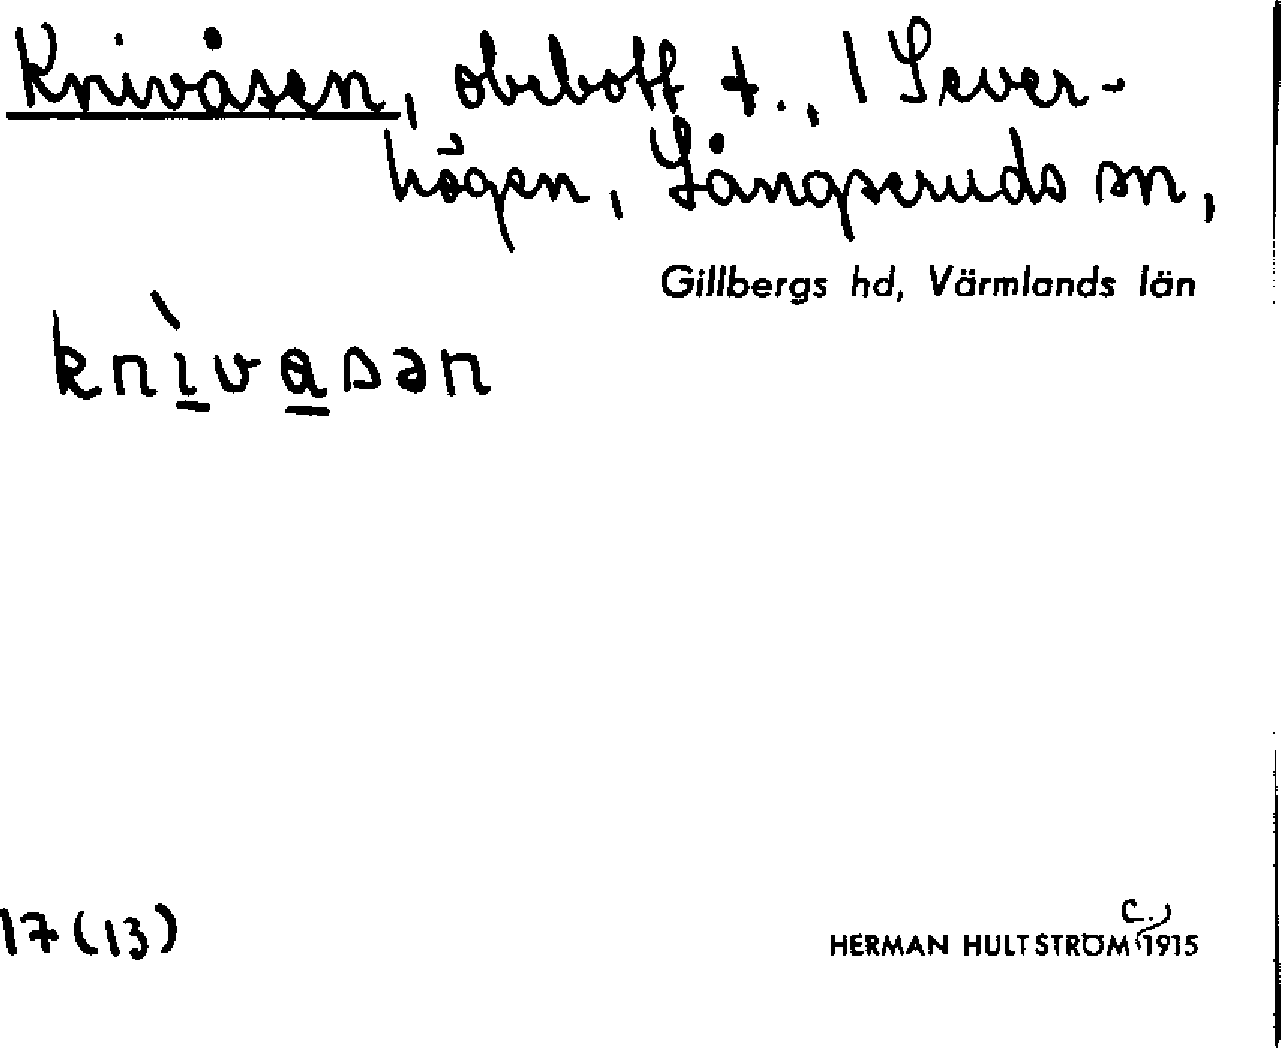 Knivåsen, obebott t., 1 Sever-
högen, Långseruds sn,
Gillbergs hd, Värmlands län
knìvasən
17 (13)
c.
HERMAN HULTSTRÖM 1915